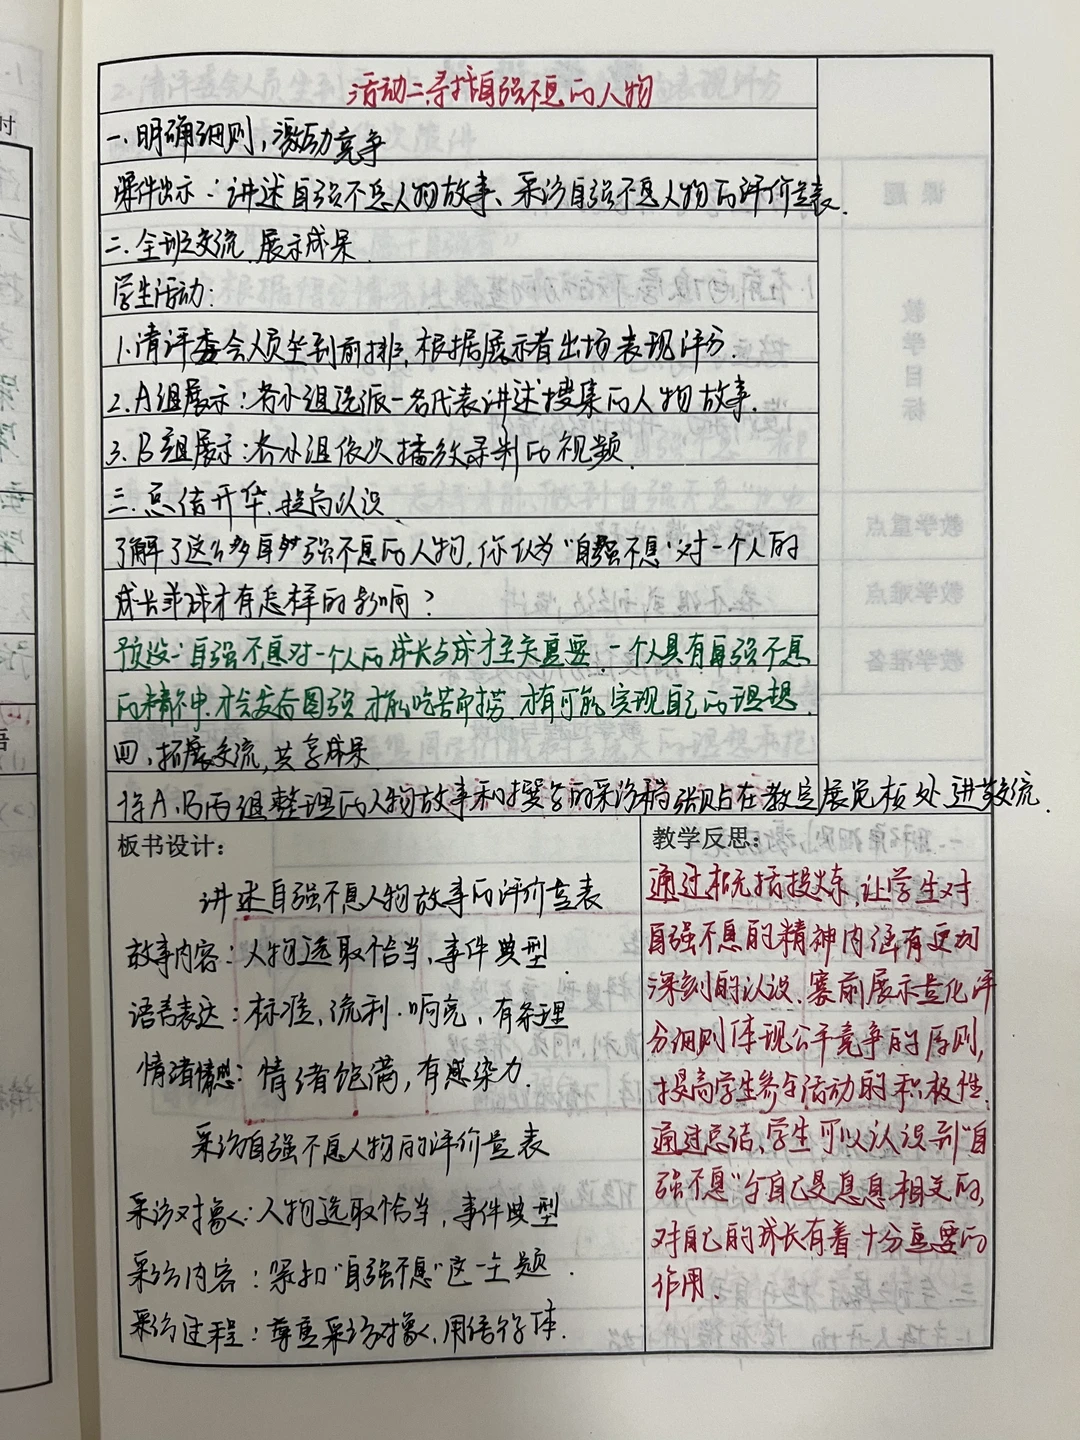 活动二寻找自强不息的人物
一.明确细则,激励竞争
课件出示:讲述自强不息人物故事、采访自强不息人物的评价量表.
二.全班交流.展示成果
学生活动:
1.请评委会人员坐到前排,根据展示者出场表现评分.
2.A组展示:各小组选派一名代表讲述搜集的人物故事.
3.B组展示:各小组依次播放录制的视频.
三.总结升华.提高认识
了解了这么多自强不息的人物,你认为"自强不息"对一个人的
成长或成才有怎样的影响?
预设:自强不息对一个人的成长与成才至关重要.一个人具有自强不息
的精神.才会发奋图强.才能吃苦耐劳.才有可能实现自己的理想.
四.拓展交流,共享成果
将A.B两组整理的人物故事和撰写的采访稿张贴在教室展览板处进行交流.
板书设计:
讲述自强不息人物故事的评价量表
故事内容:人物选取恰当,事件典型.
语言表达:标准,流利.响亮,有条理
情绪情感:情绪饱满,有感染力.
采访自强不息人物的评价量表
采访对象:人物选取恰当,事件典型
采访内容:紧扣"自强不息"这一主题.
采访过程:尊重采访对象,用语得体.
教学反思:
通过概括提炼,让学生对
自强不息的精神内涵有更加
深刻的认识.赛前展示量化评
分细则体现公平竞争的原则,
提高学生参与活动的积极性.
通过总结,学生可以认识到"自
强不息"与自己是息息相关的,
对自己的成长有着十分重要的
作用.
课题
教学目标
教学重点
教学难点
教学准备